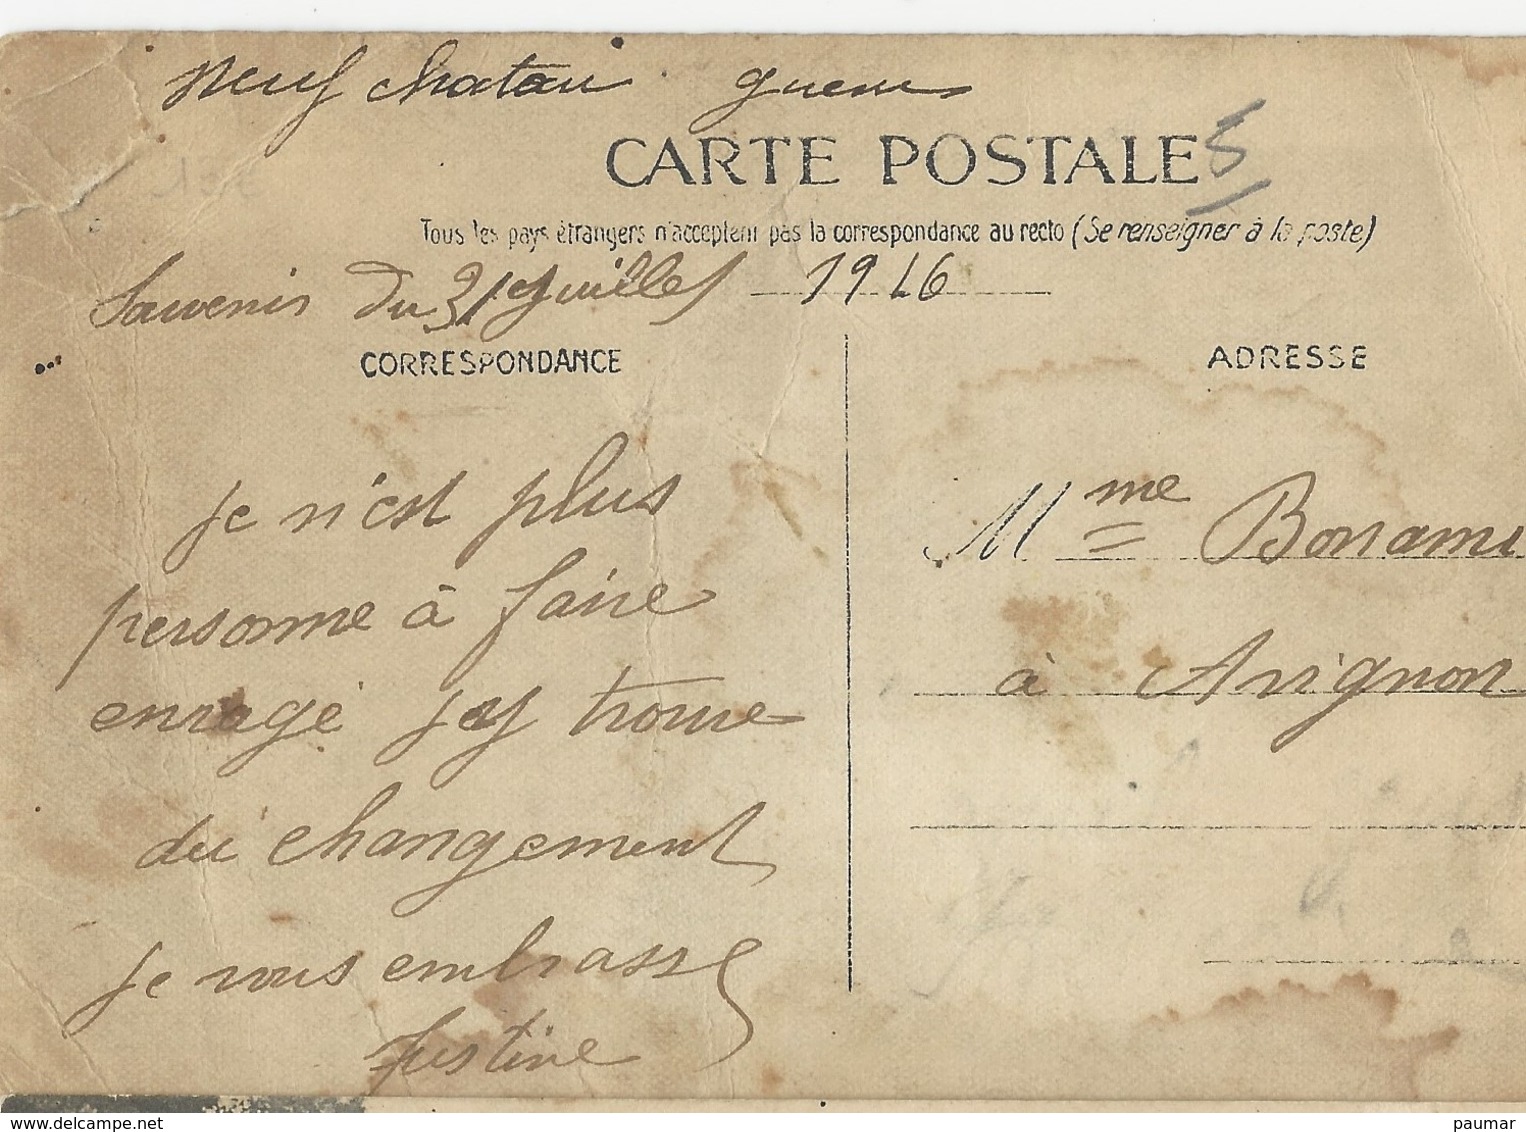 Neufchatau guerre
CARTE POSTALE
5
Tous les pays étrangers n'acceptent pas la correspondance au recto (Se renseigner à la poste)
Souvenir du 31 Juillet 1916
CORRESPONDANCE
ADRESSE
je n'est plus
personne à faire
enragé j'ey trouve
du changement
je vous embrasse
Justine
Mme Bonami
à Avignon
delcampe.net
paumar